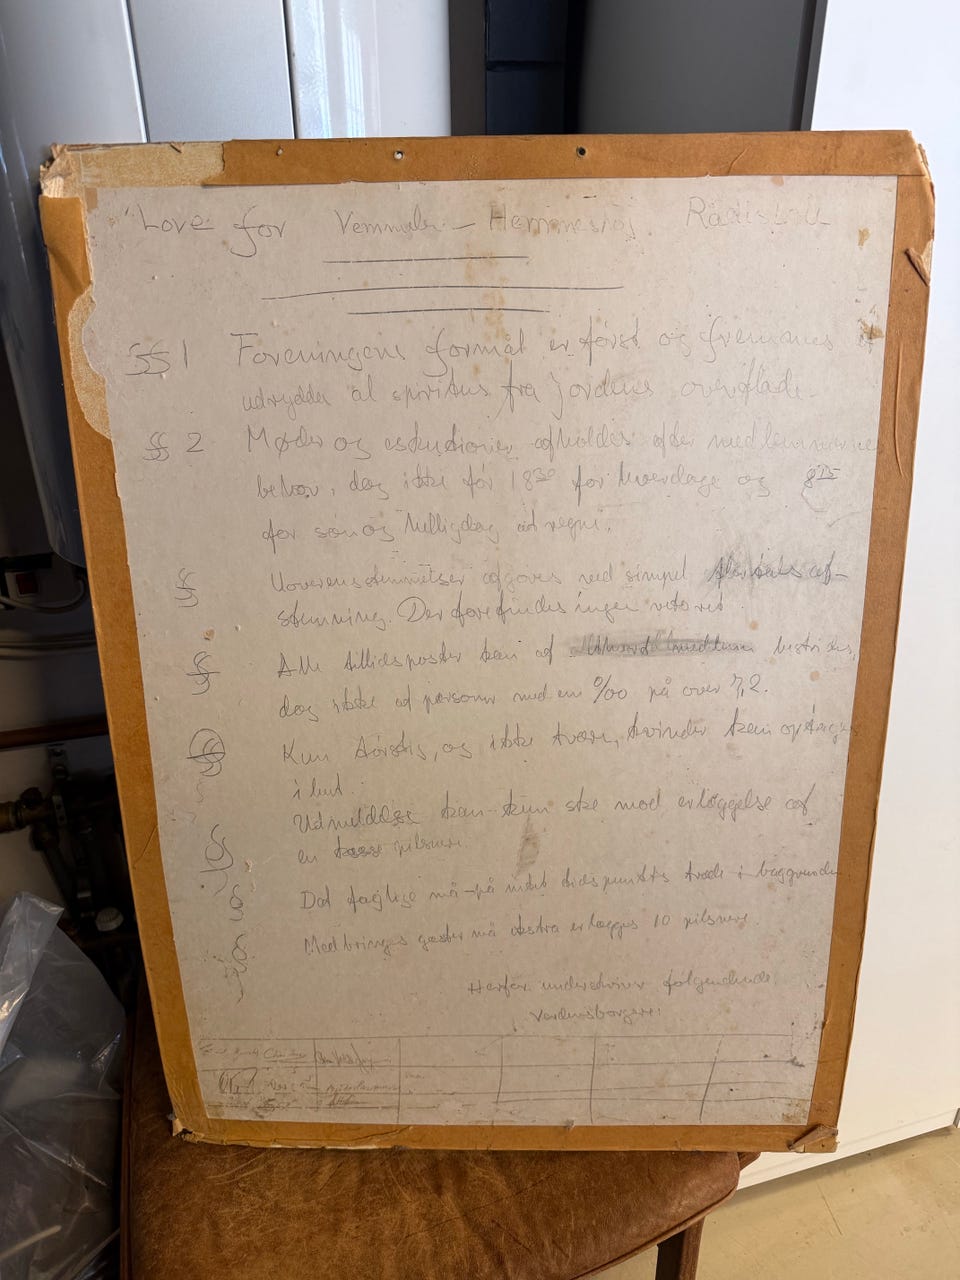 Love for Vemmelev - Hemmeshøj Radisklub
§§ 1 Foreningens formål er først og fremmest at
udrydde al spiritus fra jordens overflade.
§§ 2 Møder og ekskursioner afholdes efter medlemmernes
behov, dog ikke før 18³⁰ for hverdage og 8¹⁵
for søn og helligdag at regne.
§ Uoverensstemmelser afgøres ved simpel flertals af-
stemning. Der forefindes ingen vetoret.
§ Alle tillidsposter kan af ethvert medlem bestrides,
dog ikke af personer med en °/oo på over 7,2.
§ Kun tørstig, og ikke tvære, kvinder kan optages
i
Udmeldelse kan kun ske mod erlæggelse af
en kasse pilsnere.
§ Det faglige må på intet tidspunkt træde i baggrunden
§ Medbringes gæster må ekstra erlægges 10 pilsnere.
Herfor underskriver følgende
verdensborgere: